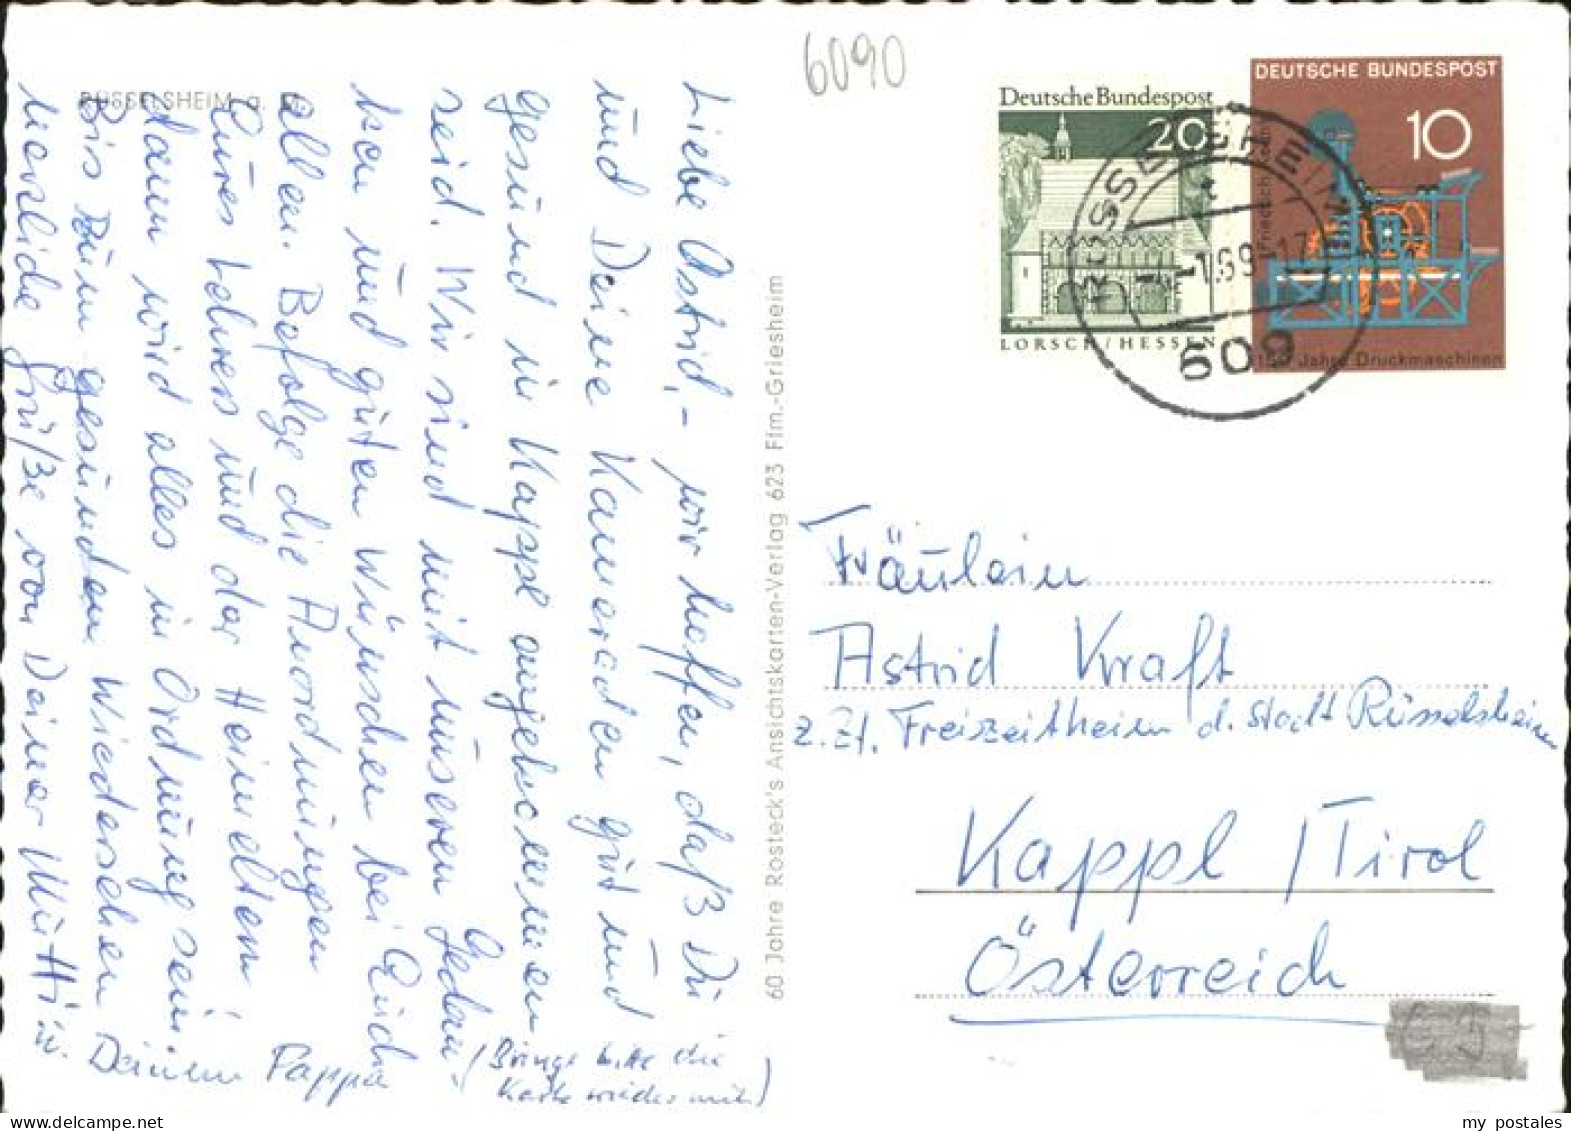 6090
RÜSSELSHEIM a.
Liebe Astrid, – wir hoffen, daß Du
und Deine Kameraden gut und
gesund in Kappl angekommen
seid. Wir sind mit unseren Gedan-
ken und guten Wünschen bei Euch
allen. Befolge die Anordnungen
Eures Lehrers und der Heimeltern,
dann wird alles in Ordnung sein.
Bis zum gesunden Wiedersehen
herzliche Grüße von Deiner Mutti u.
Deinem Pappa
(Bringe bitte die
Karte wieder mit)
60 Jahre Rosteck's Ansichtskarten-Verlag 623 Ffm.-Griesheim
Deutsche Bundespost
20
LORSCH / HESSEN
DEUTSCHE BUNDESPOST
10
Friedrich Koenig
150 Jahre Druckmaschinen
RÜSSELSHEIM
609
Fräulein
Astrid Kraft
z. Zt. Freizeitheim d. Stadt Rüsselsheim
Kappl / Tirol
Österreich
my postales